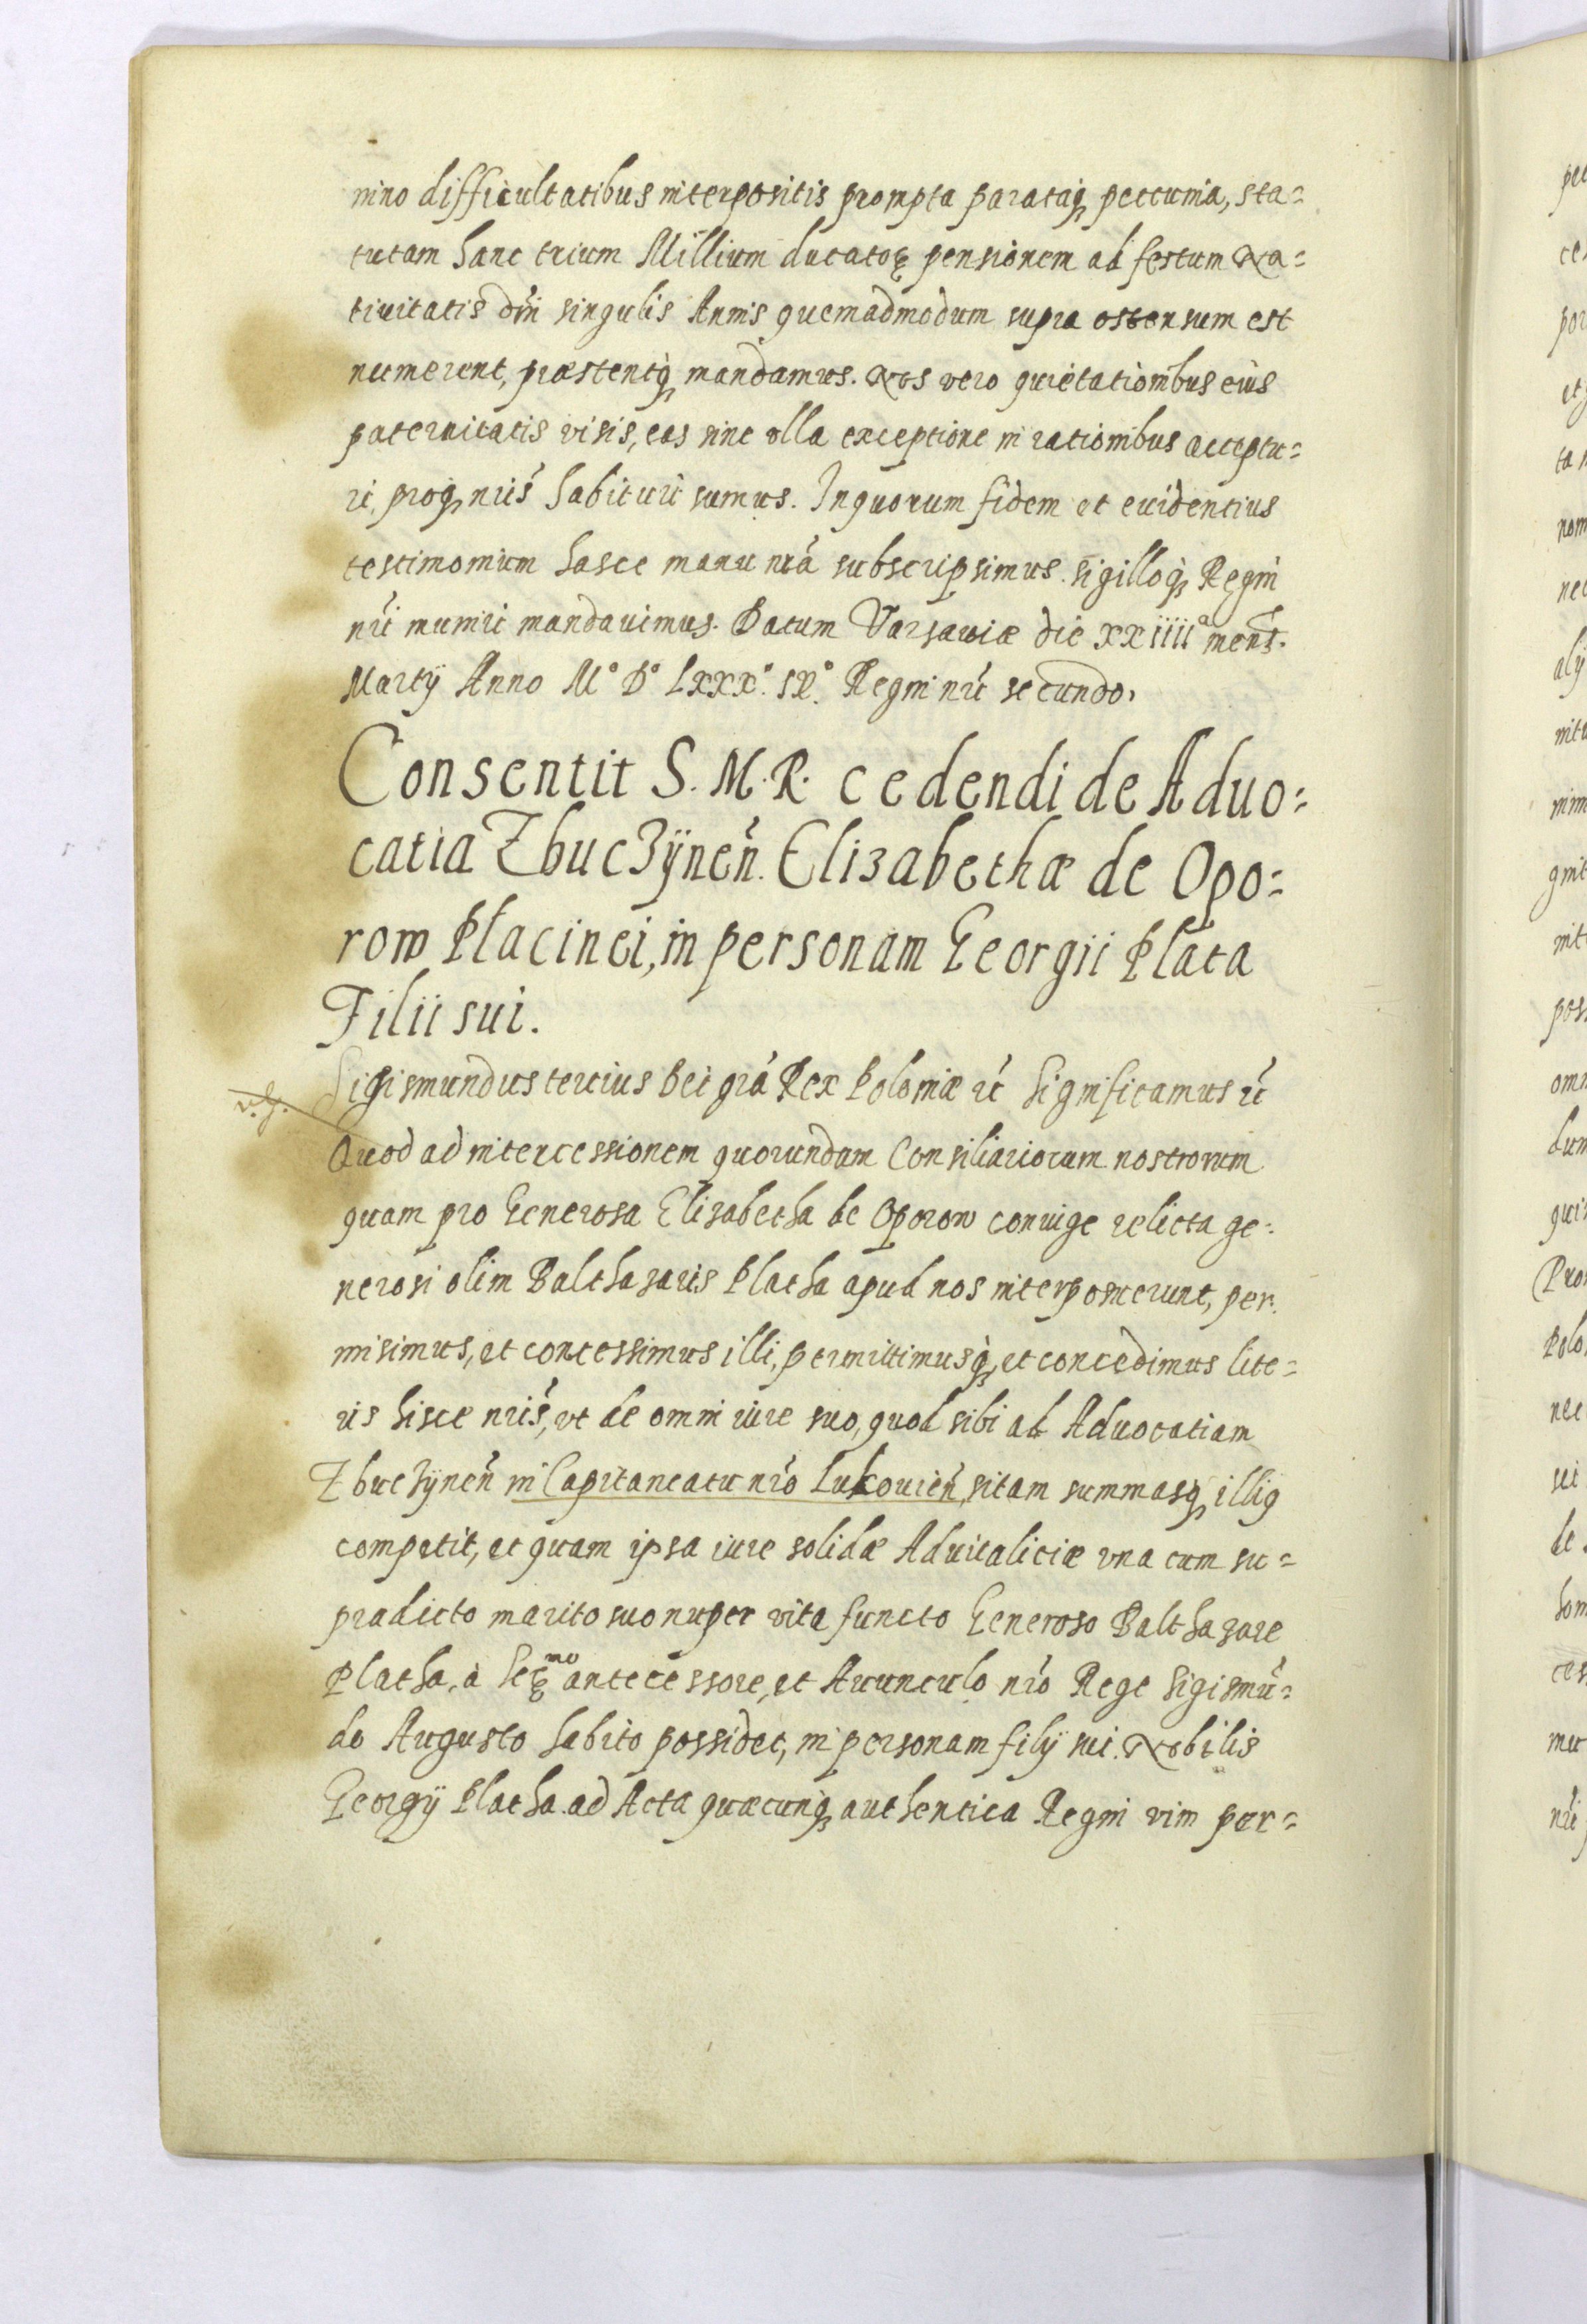 mino difficultatibus interpositis prompta parataq; peccunia, sta=
tutam hanc trium Millium ducatoꝝ pensionem ad festum Na=
tiuitatis Dńi singulis Annis quemadmodum supra ostensum est
numerent, præstentq; mandamus. Nos vero quietationibus eius
paternitatis visis, eas sine vlla exceptione in rationibus acceptu=
ri, proq; nris habituri sumus. In quorum fidem et euidentius
testimonium hasce manu nrá subscripsimus. sigilloq; Regni
nri muniri mandauimus. Datum Varsawiæ die xxiiiiᵃ mens.
Martÿ Anno M° D° Lxxx° IX.° Regni nri secundo,
Consentit S. M. R. cedendi de Aduo=
catia Zbuczÿneń. Elizabethæ de Opo=
row Placinei, in personam Georgii Plata
Filii sui.
Sigismundus tertius Dei grá Rex Poloniæ ić Significamus ić
Quod ad intercessionem quorundam Consiliariorum nostrorum
quam pro Generosa Elizabetha de Oporow coniuge relicta ge=
nerosi olim Balthazaris Platha apud nos interposuerunt, per
misimus, et concessimus illi, permittimusq; et concedimus lite=
ris hisce nris, vt de omni iure suo, quod sibi ad Aduocatiam
Zbuczÿneń in Capitaneatu nro Lukouień, sitam summasq; illiq
competit, et quam ipsa iure solidæ Aduitalitiæ vna cum su=
pradicto marito suo nuper vita functo Generoso Balthazare
Platha, à Seꝝᵐᵒ antecessore, et Auunculo nro Rege Sigismū=
do Augusto habito possidet, in personam filÿ sui Nobilis
Georgÿ Platha ad Acta quæcunq; authentica Regni vim per=